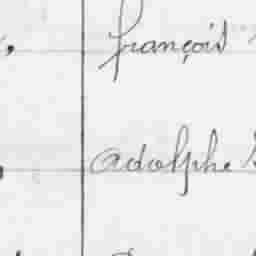 françois
adolphe